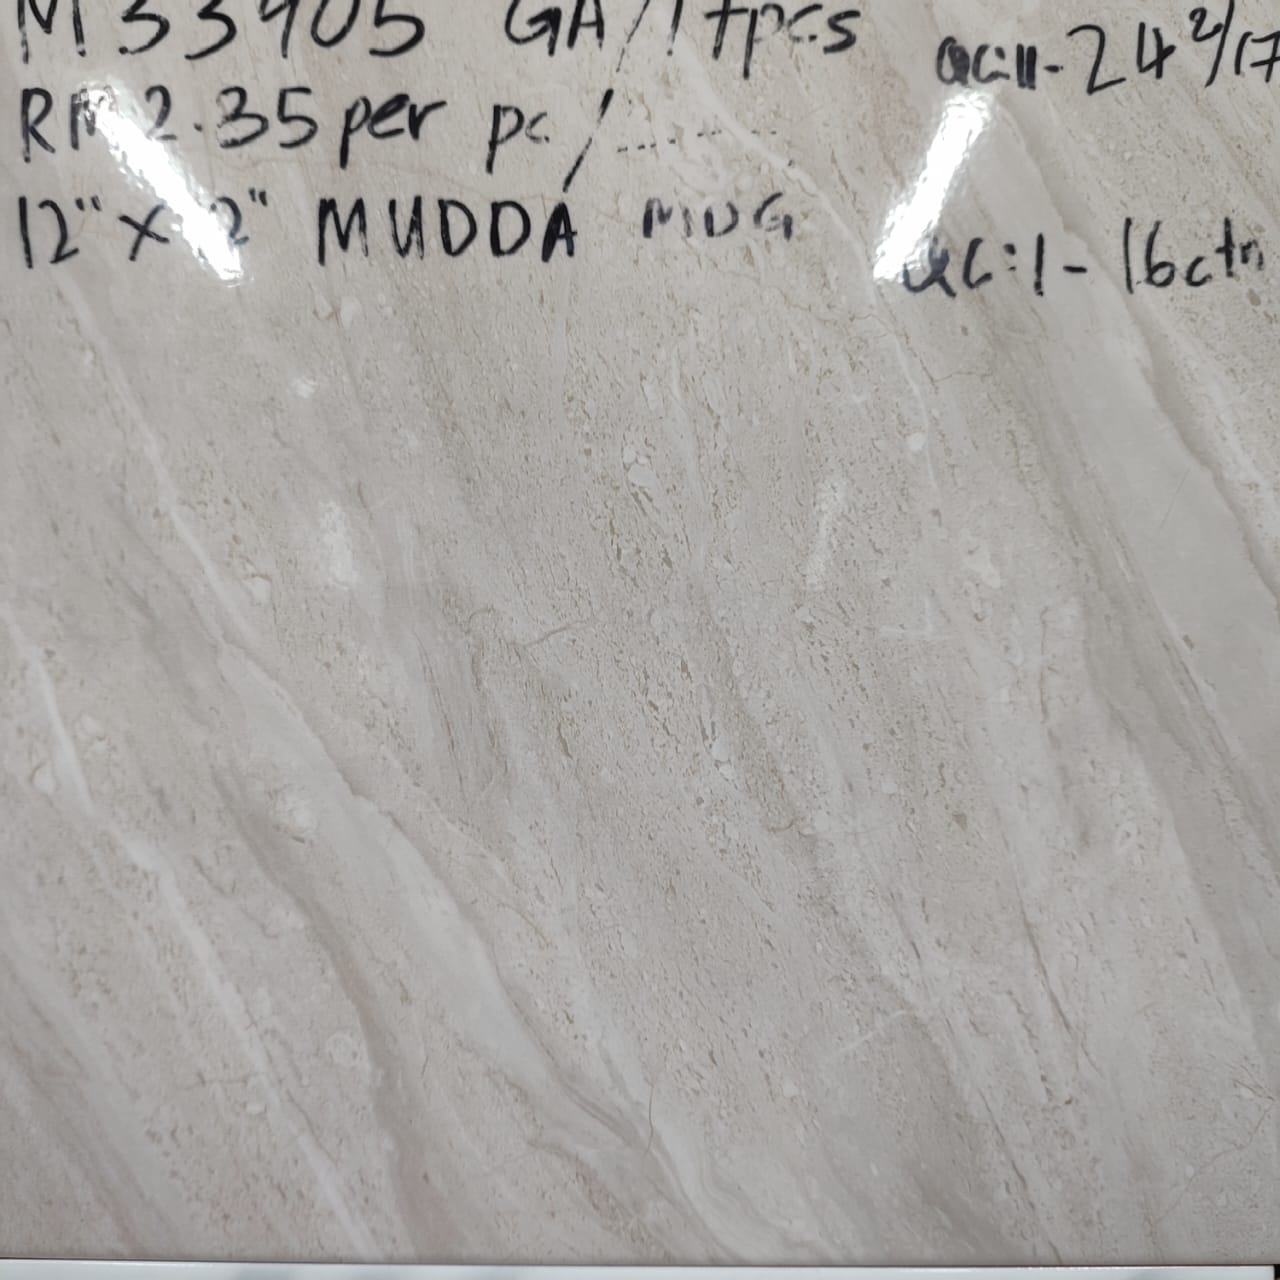 M33905 GA/17pcs
QC:11-24 2/17
RM2.35 per pc/
12" X 12" MUDDA MDG
QC:1 - 16ctn